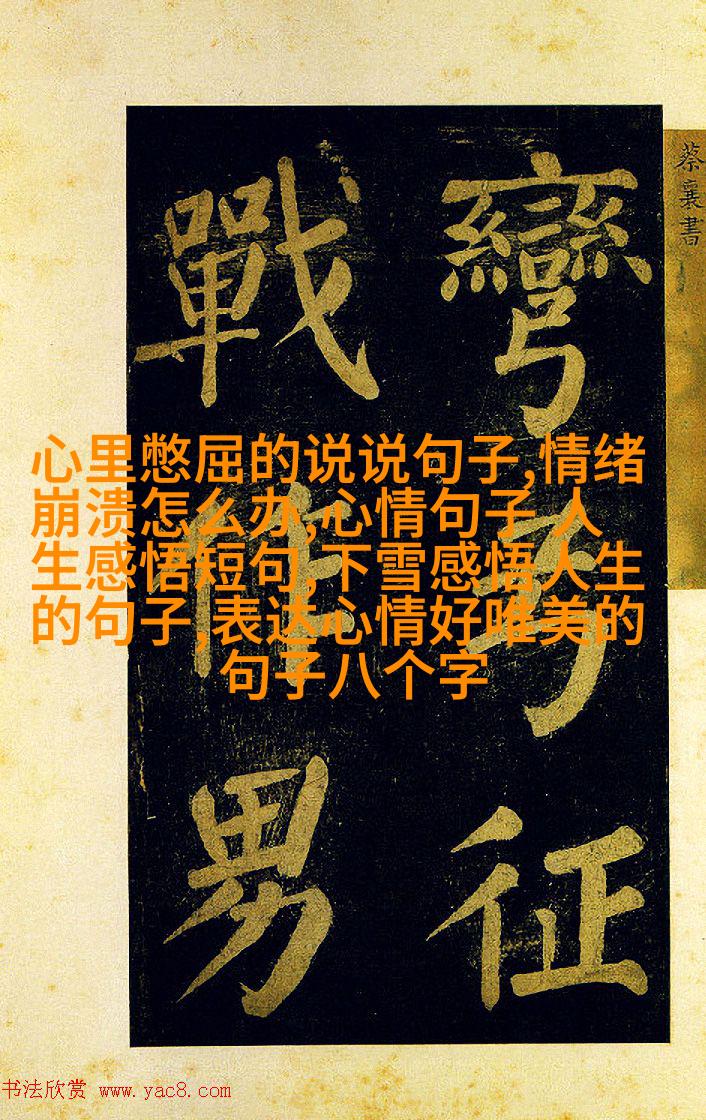 蔡襄書
彎弓征
戰作男
心里憋屈的说说句子,情绪
崩溃怎么办,心情句子 人
生感悟短句,下雪感悟人生
的句子,表达心情好唯美的
句子八个字
书法欣赏 www.yac8.com